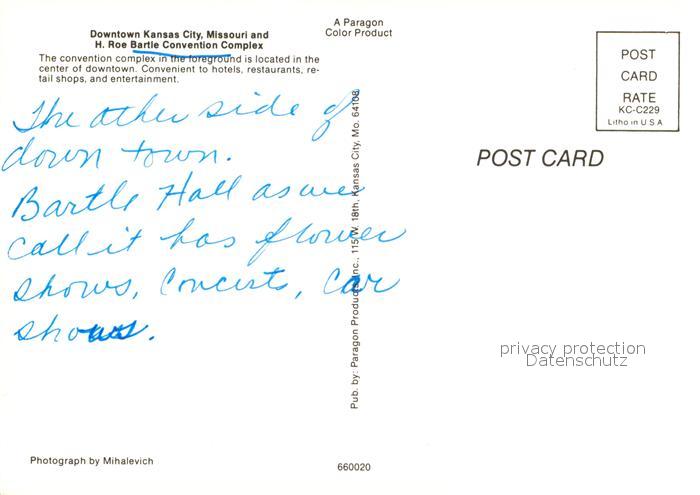 Downtown Kansas City, Missouri and
H. Roe Bartle Convention Complex
The convention complex in the foreground is located in the
center of downtown. Convenient to hotels, restaurants, re-
tail shops, and entertainment.
The other side of
down town.
Bartle Hall as we
call it has flower
shows, Concerts, Car
shows.
Photograph by Mihalevich
A Paragon
Color Product
Pub. by: Paragon Products Inc., 115 W. 18th, Kansas City, Mo. 64108
660020
POST
CARD
RATE
KC-C229
Litho in U S A
POST CARD
privacy protection
Datenschutz